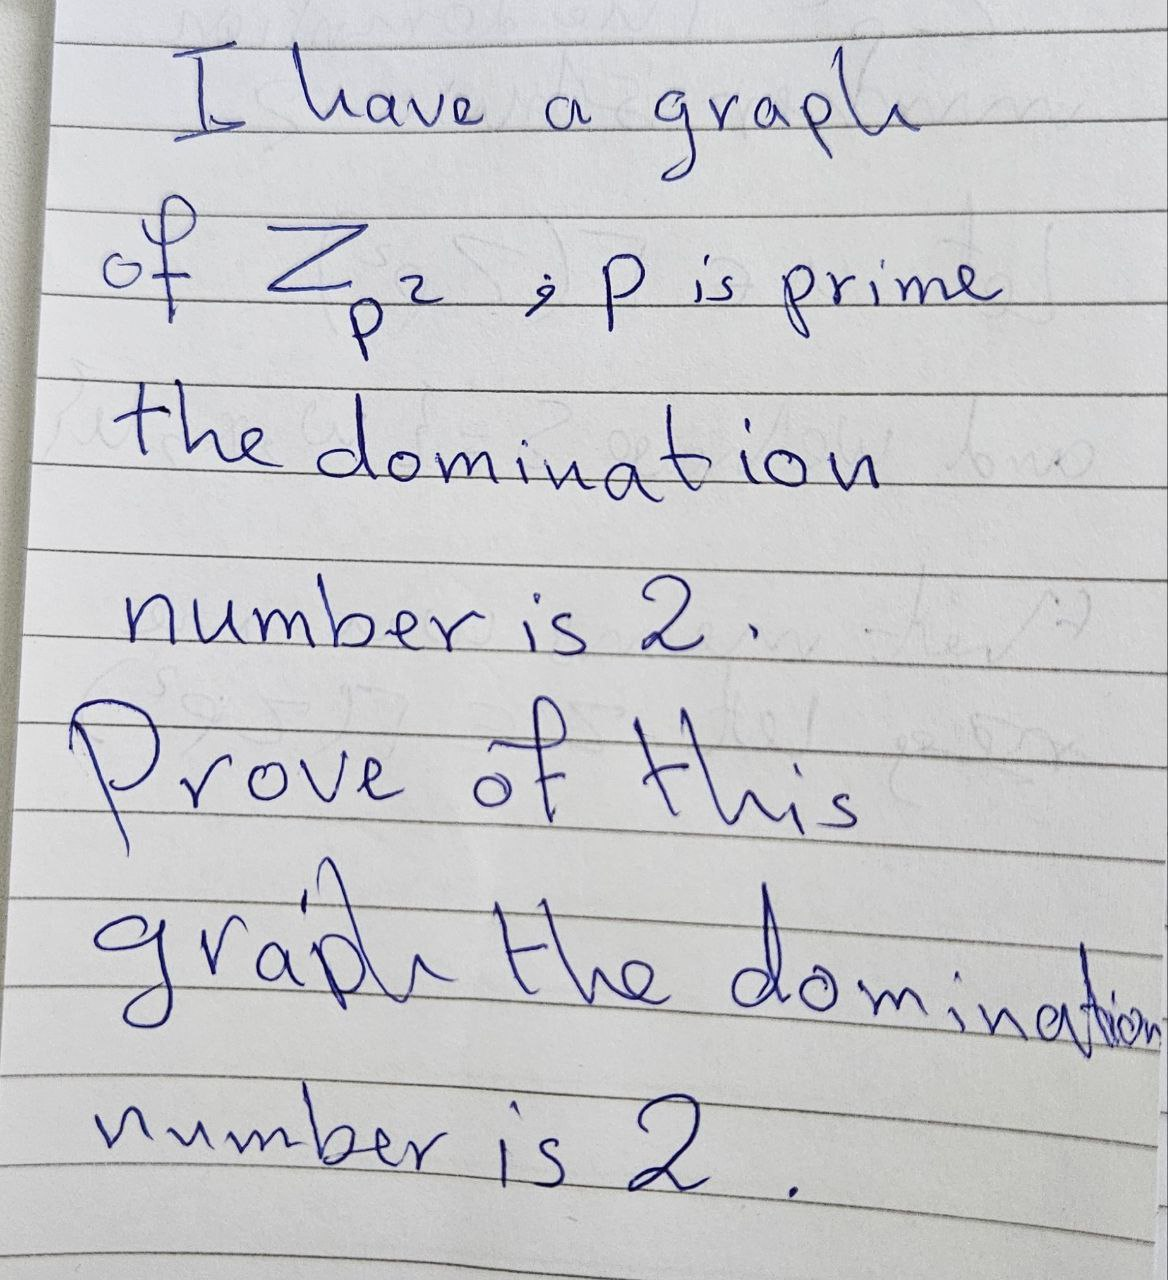 I have a graph
of Zp2 ; p is prime
the domination
number is 2.
Prove of this
graph the domination
number is 2.